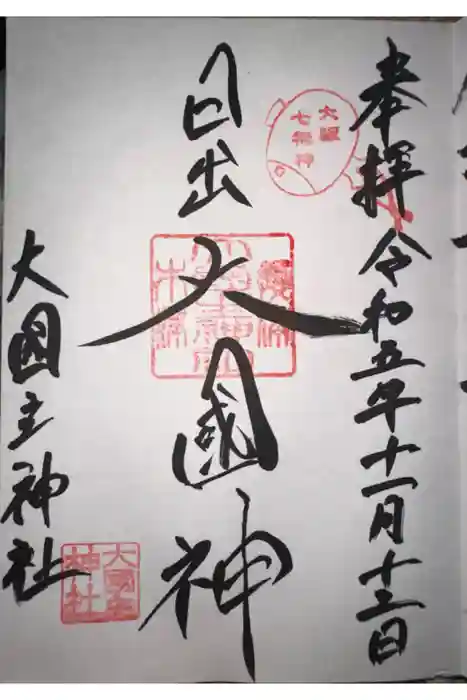 奉拝 令和五年十一月十三日
大阪
七福神
日出大國神
大國主神社
大國主
神社